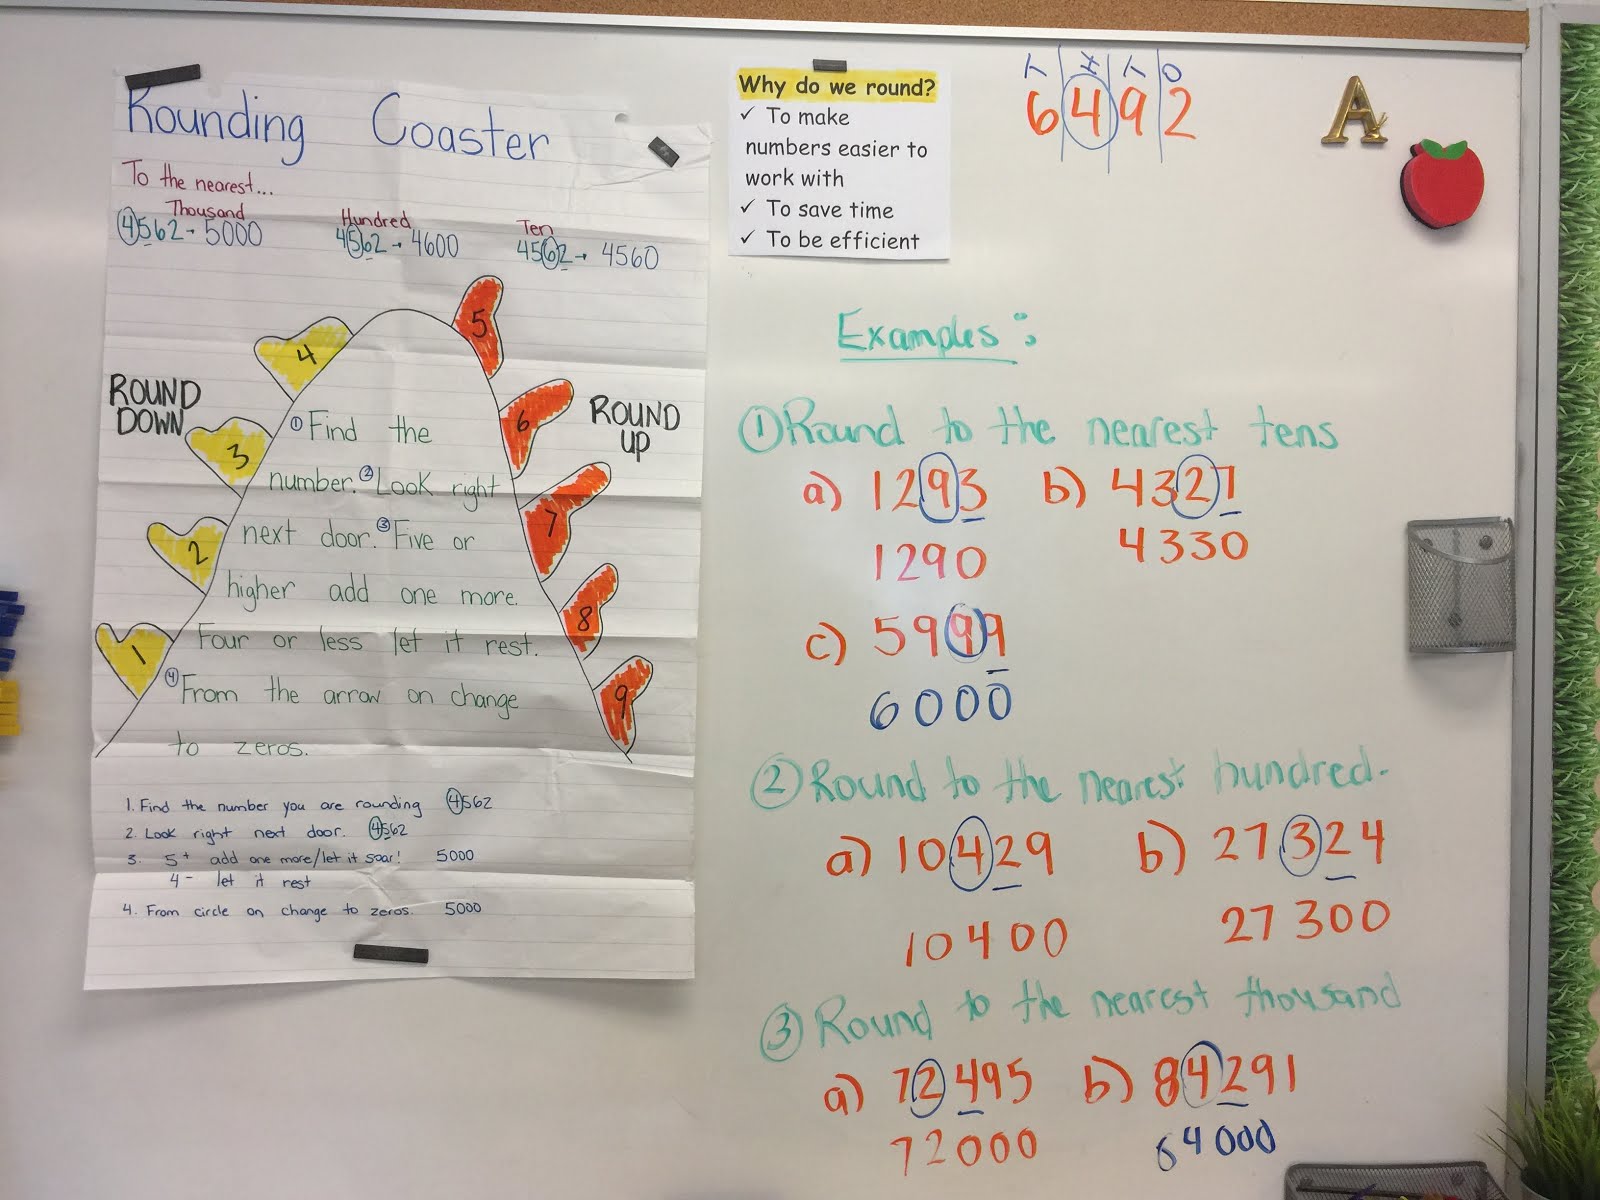 Rounding Coaster
To the nearest...
Thousand
4562 → 5000
Hundred
4562 → 4600
Ten
4562 → 4560
ROUND
DOWN
ROUND
UP
4
3
2
1
5
6
7
8
9
① Find the
number. ② Look right
next door. ③ Five or
higher add one more.
Four or less let it rest.
④ From the arrow on change
to zeros.
1. Find the number you are rounding 4562
2. Look right next door. 4562
3. 5+ add one more/let it soar! 5000
4- let it rest
4. From circle on change to zeros. 5000
Why do we round?
✓ To make
numbers easier to
work with
✓ To save time
✓ To be efficient
T H T O
6 4 9 2
A
Examples:
① Round to the nearest tens
a) 1293 b) 4327
1290 4330
c) 5999
6000
② Round to the nearest hundred.
a) 10429 b) 27324
10400 27300
③ Round to the nearest thousand
a) 72495 b) 84291
72000 64000